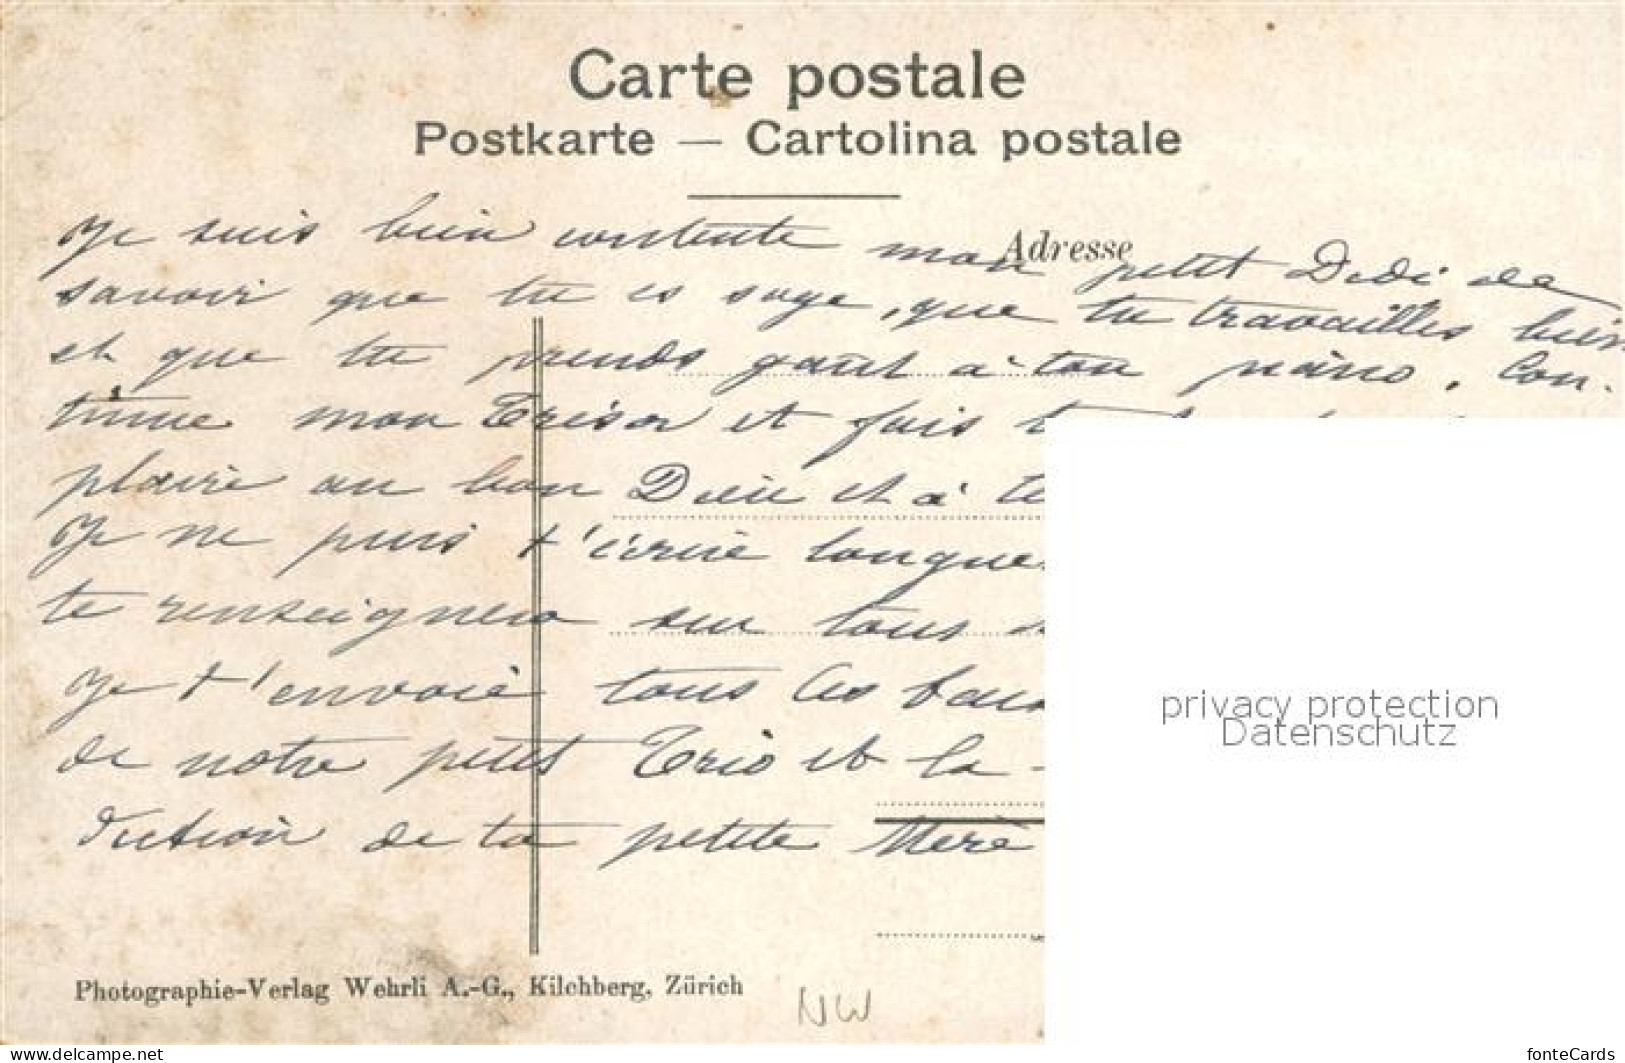 Carte postale
Postkarte — Cartolina postale
Adresse
Je suis bien contente mon petit Dédé de
savoir que tu es sage, que tu travailles bien
et que tu prends goût à ton piano. Con-
tinue mon Trésor et fais
plaire au bon Dieu et à
Je ne puis t'écrire longue
te renseignera sur tous
Je t'envoie tous les
de notre petit Trio et la
diction de ta petite Mère
Photographie-Verlag Wehrli A.-G., Kilchberg, Zürich
NW
privacy protection
Datenschutz
www.delcampe.net
fonteCards